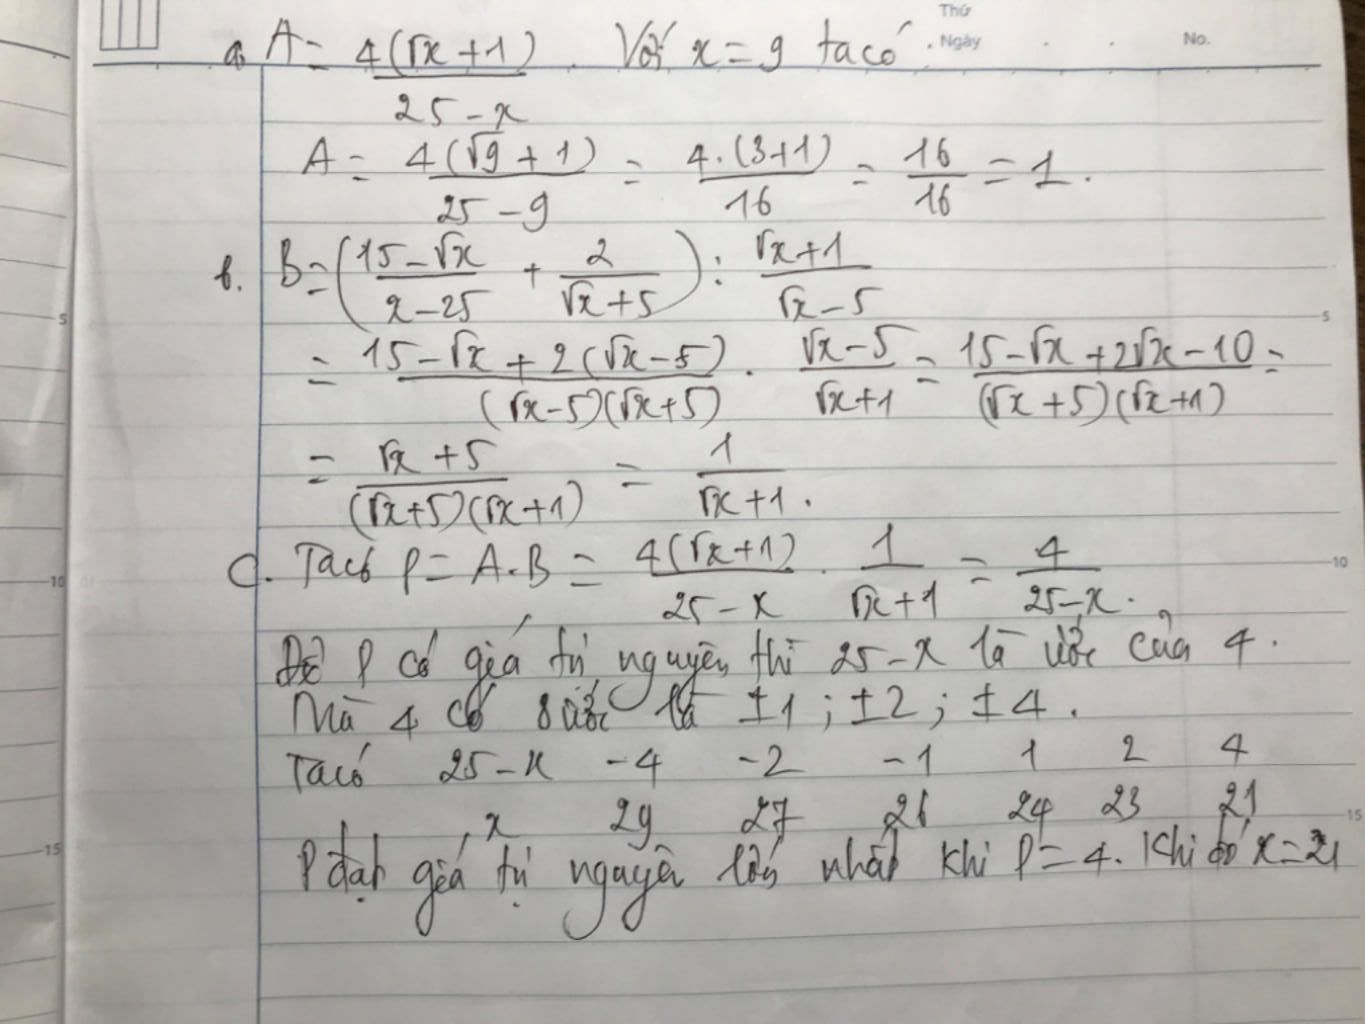 Thứ
Ngày No.
a. A = 4(√x + 1) / 25 - x . Với x = 9 ta có
A = 4(√9 + 1) / 25 - 9 = 4.(3+1) / 16 = 16/16 = 1.
b. B = (15 - √x / x - 25 + 2 / √x + 5) : √x + 1 / √x - 5
= 15 - √x + 2(√x - 5) / (√x - 5)(√x + 5) . √x - 5 / √x + 1 = 15 - √x + 2√x - 10 / (√x + 5)(√x + 1) =
= √x + 5 / (√x + 5)(√x + 1) = 1 / √x + 1.
C. Ta có P = A.B = 4(√x + 1) / 25 - x . 1 / √x + 1 = 4 / 25 - x.
Để P có giá trị nguyên thì 25 - x là ước của 4.
Mà 4 có ước là ±1 ; ±2 ; ±4.
Ta có 25 - x -4 -2 -1 1 2 4
x 29 27 26 24 23 21
P đạt giá trị nguyên lớn nhất khi P = 4. Khi đó x = 21
5 5
10 01 10
15 15